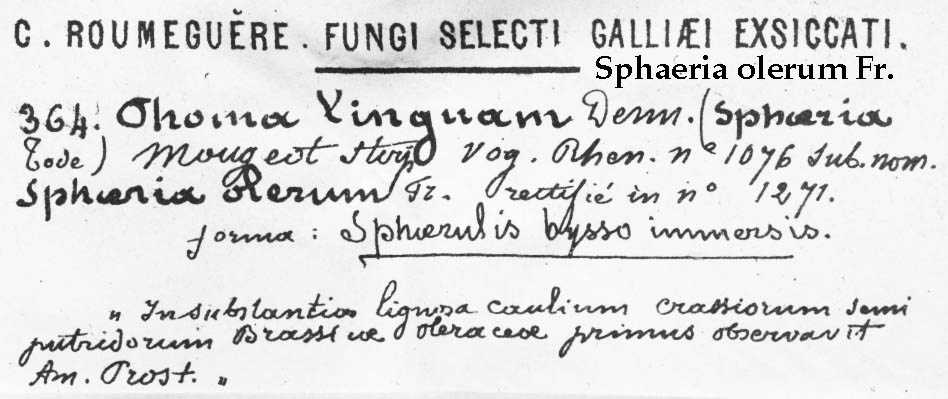 C. ROUMEGUĔRE. FUNGI SELECTI GALLIÆI EXSICCATI.
Sphaeria olerum Fr.
364. Phoma Lingnam Desm. (Sphæria
Tode) Mougeot stirp Vog. Rhen. nº 1076 sub. nom.
Sphæria olerum Fr. rectifié in nº 1271.
forma: Sphærulis bysso immersis.
„ In substantia lignosa caulium crassiorum semi
putridorum Brassicæ oleraceæ primus observavit
Am. Prost. „